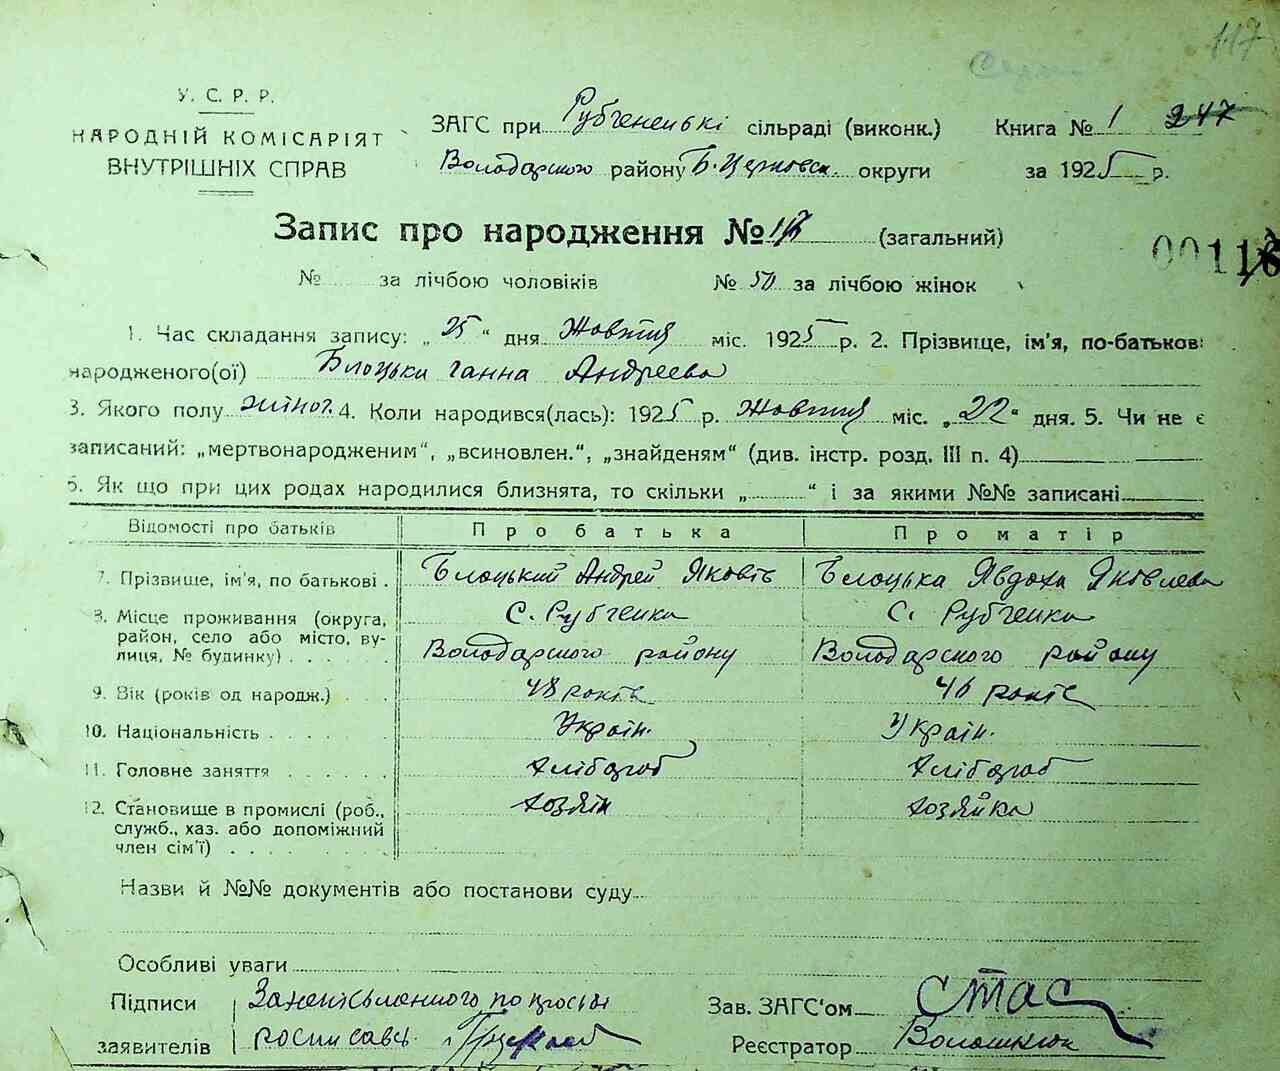 117
У. С. Р. Р.
НАРОДНІЙ КОМІСАРІЯТ
ВНУТРІШНІХ СПРАВ
ЗАГС при Рубченські сільраді (виконк.) Книга № 1 247
Володарского району Б. Церковск. округи за 1925 р.
Запис про народження № (загальний)
№ за лічбою чоловіків № 50 за лічбою жінок
1. Час складання запису: „ 25 “ дня Жовтня міс. 1925 р. 2. Прізвище, ім'я, по-батькові
народженого(ої) Білоцька Ганна Андреева
3. Якого полу жіноч. 4. Коли народився(лась): 1925 р. Жовтня міс. „ 22 “ дня. 5. Чи не є
записаний: „мертвонародженим“, „всиновлен.“, „знайденям“ (див. інстр. розд. III п. 4)
6. Як що при цих родах народилися близнята, то скільки „ “ і за якими №№ записані
Відомості про батьків Про батька Про матір
7. Прізвище, ім'я, по батькові . Білоцький Андрей Яковів Білоцька Явдоха Яковлева
8. Місце проживання (округа, С. Рубченка С. Рубченка
район, село або місто, ву-
лиця, № будинку) . . . . . Володарского району Володарского району
9. Вік (років од народж.) . . 48 років 46 років
10. Національність . . . . . Україн. Україн.
11. Головне заняття . . . . . Хлібороб Хлібороб
12. Становище в промислі (роб., хозяін хозяйка
служб., хаз. або допоміжний
член сім'ї) . . . . . . .
Назви й №№ документів або постанови суду
Особливі уваги
Підписи За неписьменного по просьбі
заявителів росписавсь
Зав. ЗАГС'ом Стас
Реєстратор Волошинюк